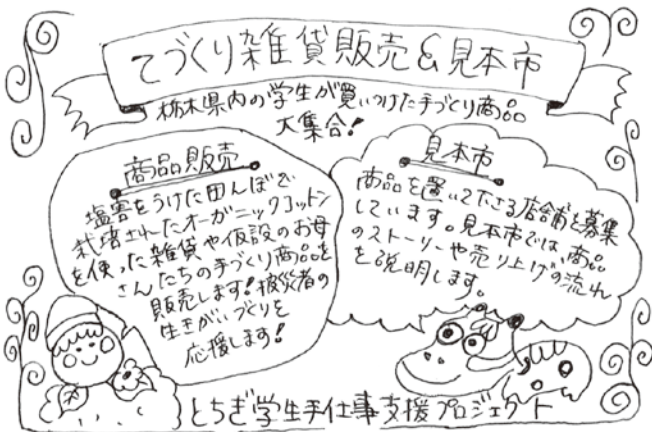 てづくり雑貨販売&見本市
栃木県内の学生が買いつけた手づくり商品
大集合!
商品販売
塩害をうけた田んぼで
栽培されたオーガニックコットン
を使った雑貨や仮設のお母
さんたちの手づくり商品を
販売します!被災者の
生きがいづくりを
応援します!
見本市
商品を置いて下さる店舗を募集
しています。見本市では、商品
のストーリーや売り上げの流れ
を説明します。
とちぎ学生手仕事支援プロジェクト